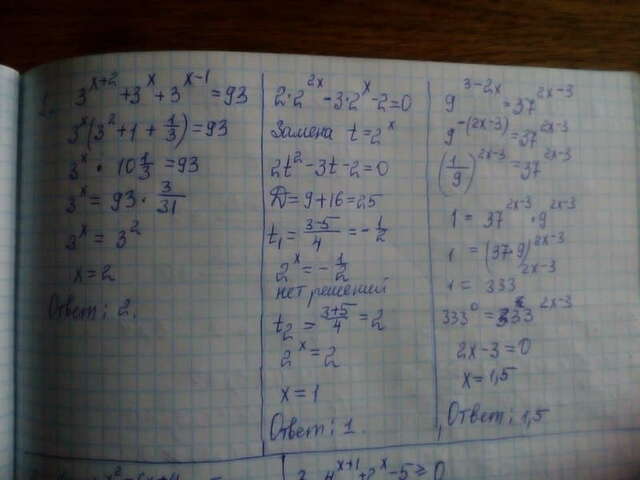 3^(x+2) + 3^x + 3^(x-1) = 93
3^x(3^2 + 1 + 1/3) = 93
3^x · 10 1/3 = 93
3^x = 93 · 3/31
3^x = 3^2
x = 2
Ответ: 2.
2·2^(2x) - 3·2^x - 2 = 0
Замена t = 2^x
2t^2 - 3t - 2 = 0
D = 9 + 16 = 25
t₁ = (3-5)/4 = -1/2
2^x = -1/2
нет решений
t₂ = (3+5)/4 = 2
2^x = 2
x = 1
Ответ: 1.
9^(3-2x) = 37^(2x-3)
9^(-(2x-3)) = 37^(2x-3)
(1/9)^(2x-3) = 37^(2x-3)
1 = 37^(2x-3) · 9^(2x-3)
1 = (37·9)^(2x-3)
1 = 333^(2x-3)
333^0 = 333^(2x-3)
2x-3 = 0
x = 1,5
Ответ: 1,5